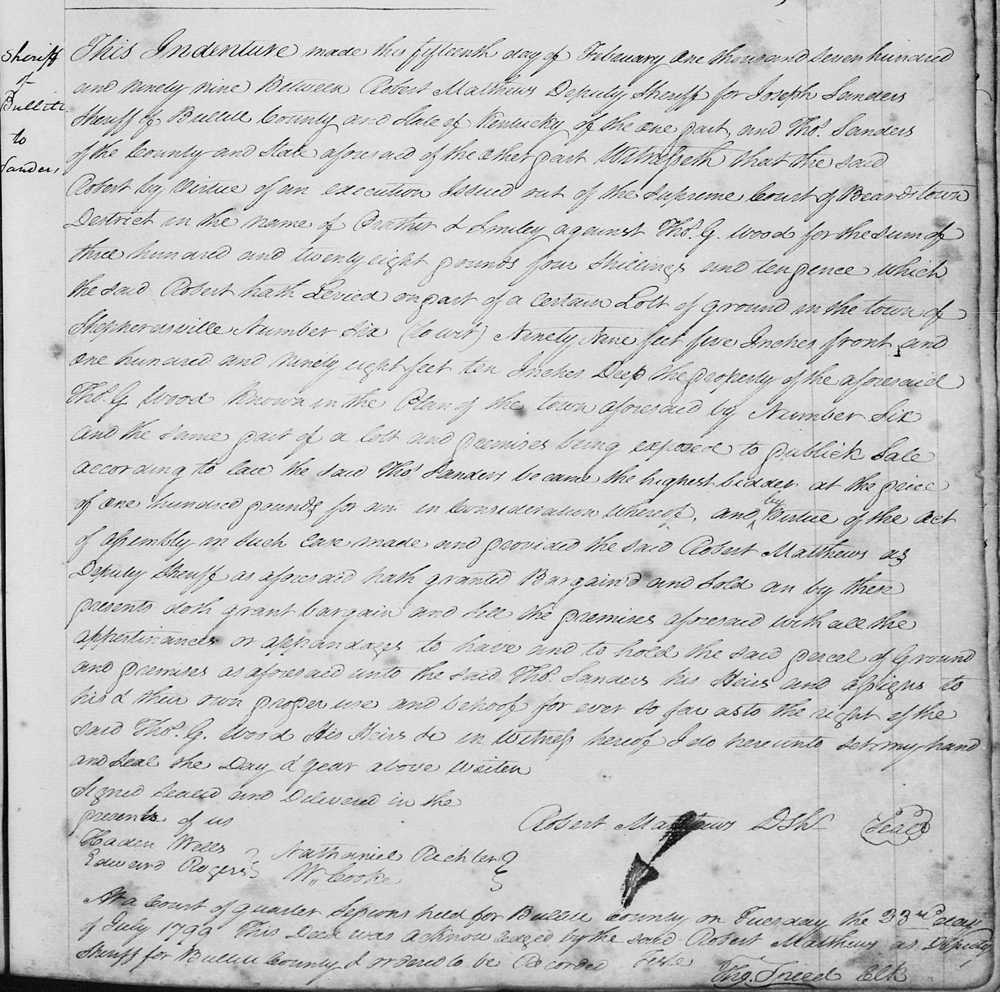 Sheriff
of
Bullitt
to
Sanders
This Indenture made the fifteenth day of February one thousand seven hundred
and ninety nine Between Robert Mathews Deputy Sheriff for Joseph Sanders
Sheriff of Bullitt County and State of Kentucky of the one part, and Thos. Sanders
of the County and State aforesaid of the other part Witnesseth that the said
Robert by Virtue of an execution Issued out of the Supreme Court of Beardstown
District in the name of Prather & Smiley against Thos. G. Wood for the sum of
three hundred and twenty eight pounds four Shillings and tenpence which
the said Robert hath Levied on part of a Certain Lott of ground in the town of
Sheppardsville Number Six (to wit) Ninety Nine feet five Inches front, and
one hundred and Ninety eight feet ten Inches Deep the property of the aforesaid
Thos. G. Wood Known in the Plan of the town aforesaid by Number Six
and the same part of a lott and premises being exposed to publick Sale
according to law the said Thos. Sanders became the highest bidder at the price
of one hundred pounds for an in Consideration whereof, and by Virtue of the act
of Assembly in such Case made and provided the said Robert Matthews as
Deputy Sheriff as aforesaid hath granted Bargain'd and Sold an by these
presents doth grant bargain and sell the premises aforesaid with all the
appertinances or appandages to have and to hold the said percal of Ground
and premises as aforesaid unto the said Thos. Sanders his Heirs and assigns to
his & their own proper use and behoof for ever so far as to the right of the
said Thos. G. Wood His Heirs &c in Witness hereof I do hereunto set my hand
and Seal the Day & year above Writen
Signed Sealed and Delivered in the
presents of us
Robert Matthews DSh Seal
Haden Wells
Edward Rogers
Nathaniel
Wm Cooke
At a Court of quarter Sessions held for Bullitt County on Tuesday the 23rd day
of July 1799 This Deed was acknowledged by the said Robert Mathews as Deputy
Sheriff for Bullitt County & ordered to be Recorded
Teste
Thos. Speed Clk